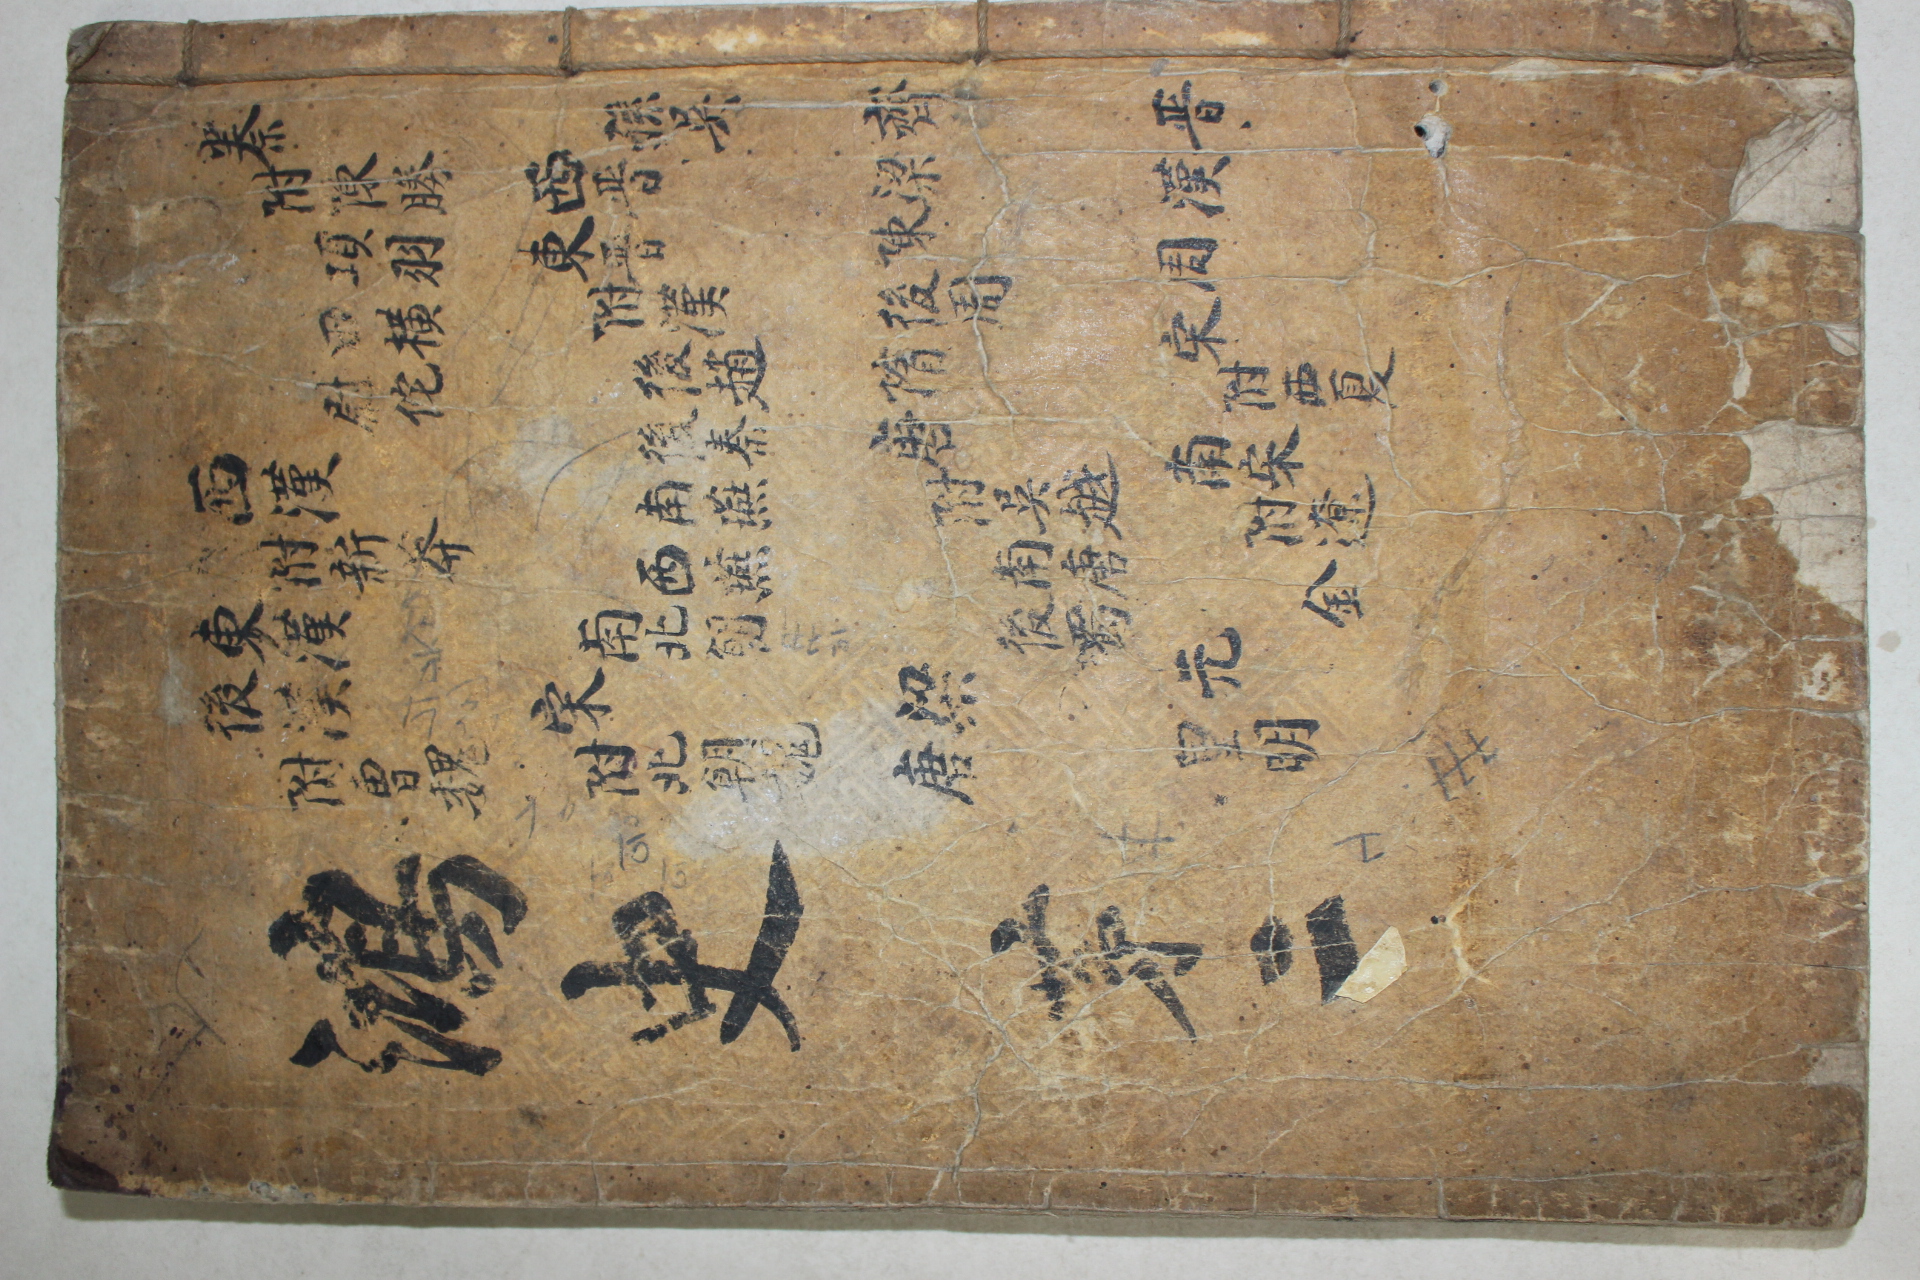 秦
附陳勝
項羽
田橫
尉佗
西漢
附新莽
東漢
後漢
附曹魏
孫吳
西晉
東晉
附後漢
後趙
後秦
南燕
西燕
南北朝
宋
附北朝魏
齊
梁
陳
後周
隋
唐
附吳越
南唐
後蜀
梁
唐
晉
漢
周
宋
附西夏
南宋
附遼
金
元
皇明
鴻史 苐二